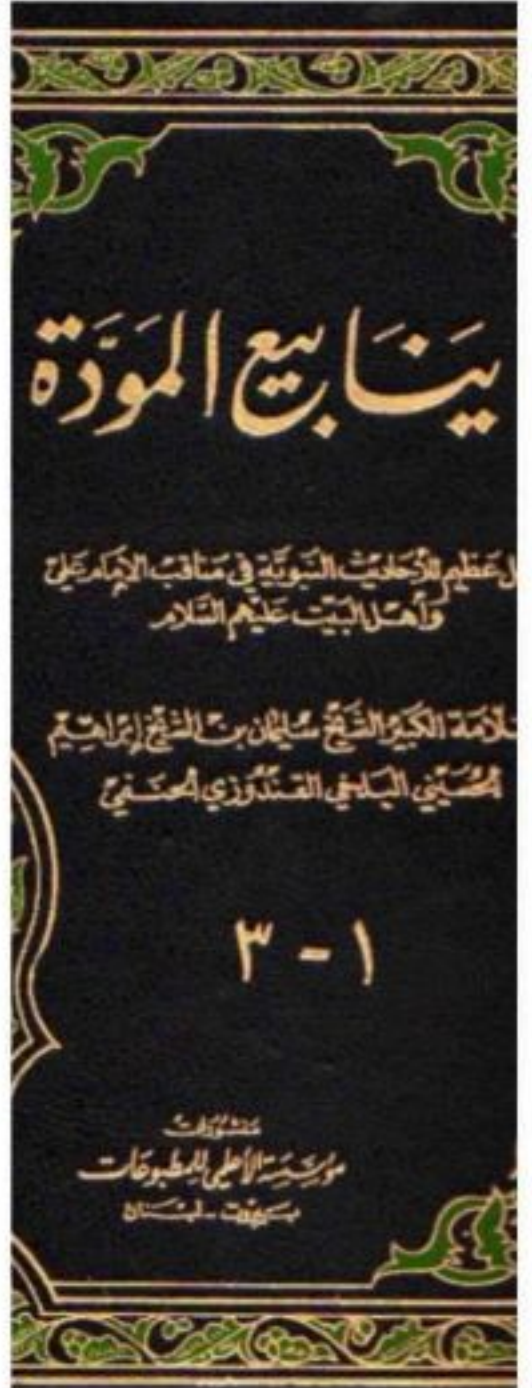 يَنَابيع المَوَدَّة
عَظيم للأحَاديث النَبَويَّة في مَنَاقب الإمَام عَلي
وَأهل البَيت عَليهم السَّلام
الكبير الشَّيْخ سُليمَان بن الشَّيخ إبرَاهيم
الحُسَيني البَلخي القندُوزي الحنَفي
١ - ٣
منشورات
مؤسَّسَة الأعلمي للمطبوعَات
بَيروت - لبنان